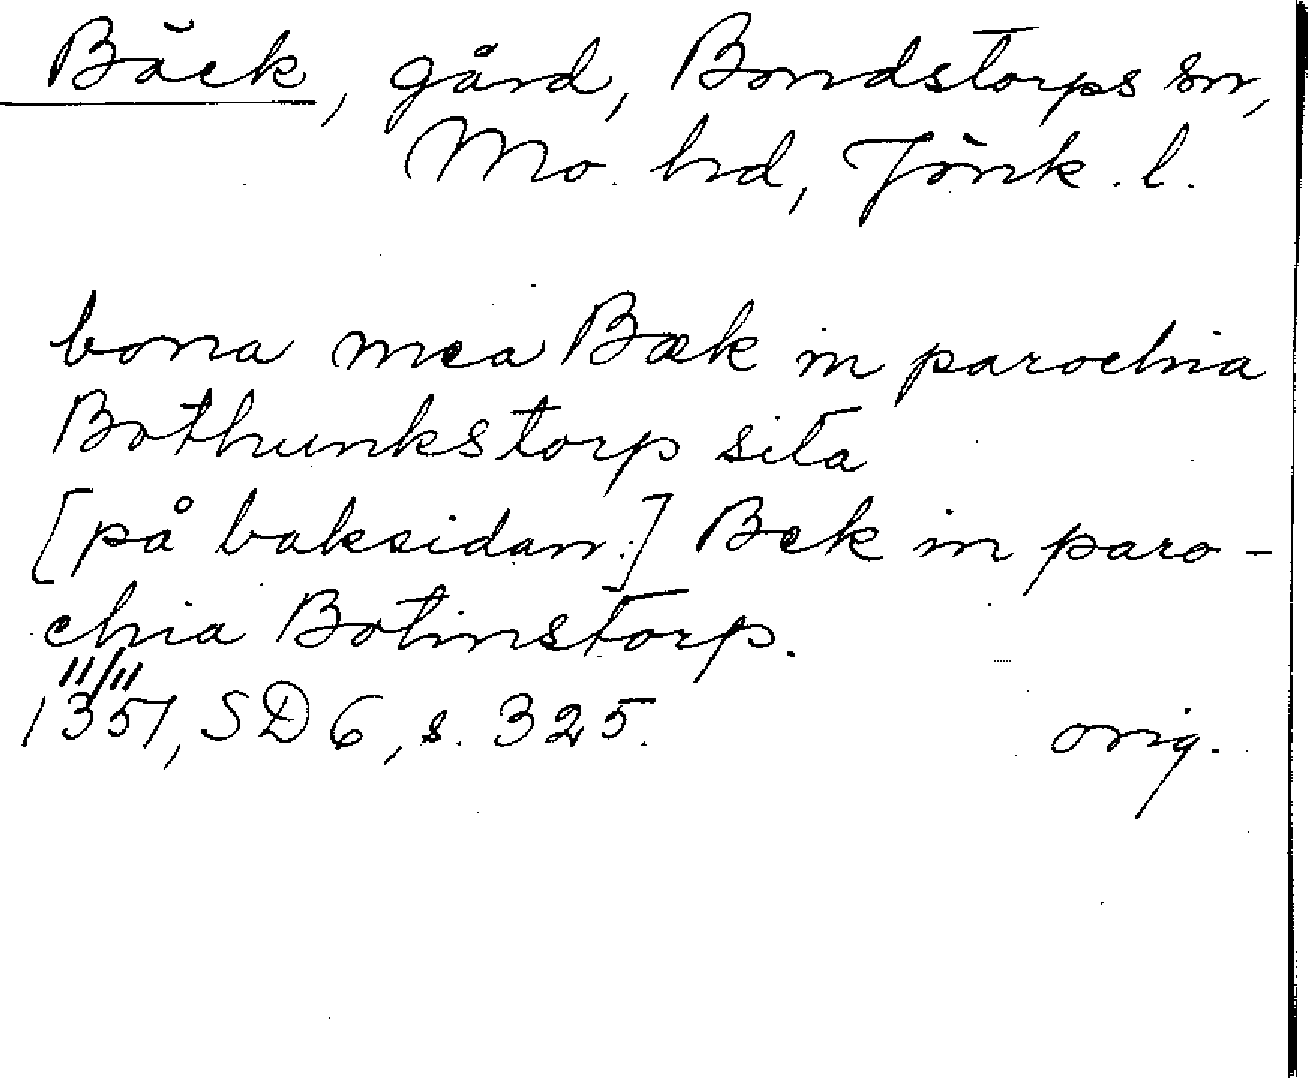 Bäck, gård, Bondstorps sn,
Mo hd, Jönk. l.
bona mea Bæk in parochia
Bothunkstorp sita
[på baksidan:] Bek in paro-
chia Botinstorp.
11/11
1351, SD 6, s. 325. orig.